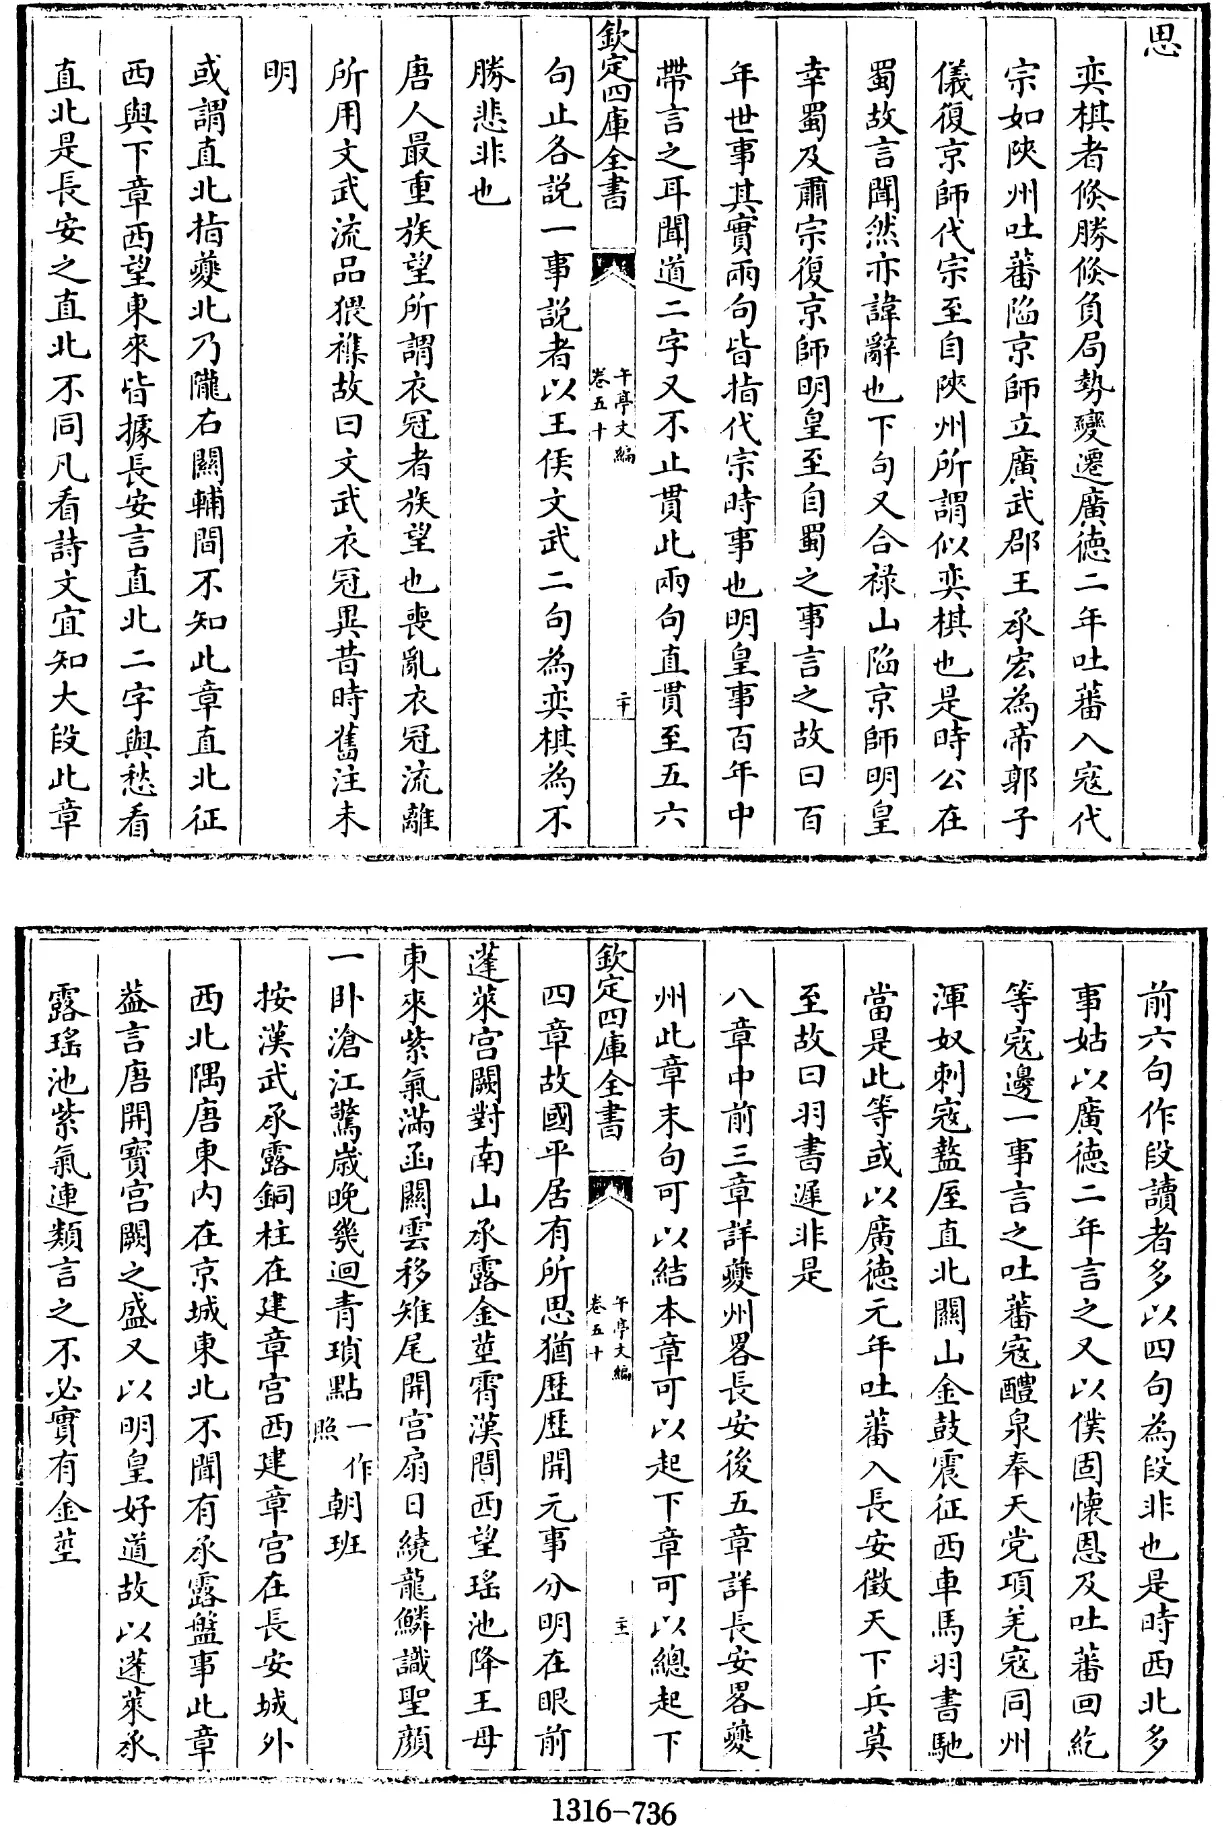 思
奕棋者倐勝倐負局勢變遷廣徳二年吐蕃入寇代
宗如陜州吐蕃陷京師立廣武郡王承宏為帝郭子
儀復京師代宗至自陜州所謂似奕棋也是時公在
蜀故言聞然亦諱辭也下句又合禄山陷京師明皇
幸蜀及肅宗復京師明皇至自蜀之事言之故曰百
年世事其實兩句皆指代宗時事也明皇事百年中
帶言之耳聞道二字又不止貫此兩句直貫至五六
欽定四庫全書
午亭文編
卷五十
二十
句止各説一事説者以王侯文武二句為奕棋為不
勝悲非也
唐人最重族望所謂衣冠者族望也喪亂衣冠流離
所用文武流品猥襍故曰文武衣冠異昔時舊注未
明
或謂直北指夔北乃隴右關輔間不知此章直北征
西與下章西望東來皆據長安言直北二字與愁看
直北是長安之直北不同凡看詩文宜知大段此章
前六句作段讀者多以四句為段非也是時西北多
事姑以廣徳二年言之又以僕固懐恩及吐蕃回紇
等寇邊一事言之吐蕃寇醴泉奉天党項羌寇同州
渾奴刺寇盩厔直北關山金鼓震征西車馬羽書馳
當是此等或以廣徳元年吐蕃入長安徵天下兵莫
至故曰羽書遲非是
八章中前三章詳夔州畧長安後五章詳長安畧夔
州此章末句可以結本章可以起下章可以總起下
欽定四庫全書
午亭文編
卷五十
二十一
四章故國平居有所思猶歴歴開元事分明在眼前
蓬萊宫闕對南山承露金莖霄漢間西望瑤池降王母
東來紫氣滿函關雲移雉尾開宫扇日繞龍鱗識聖顔
一卧滄江驚歳晚幾迴青瑣點一作照朝班
按漢武承露銅柱在建章宫西建章宫在長安城外
西北隅唐東内在京城東北不聞有承露盤事此章
葢言唐開寳宫闕之盛又以明皇好道故以蓬萊承
露瑤池紫氣連類言之不必實有金莖
1316-736